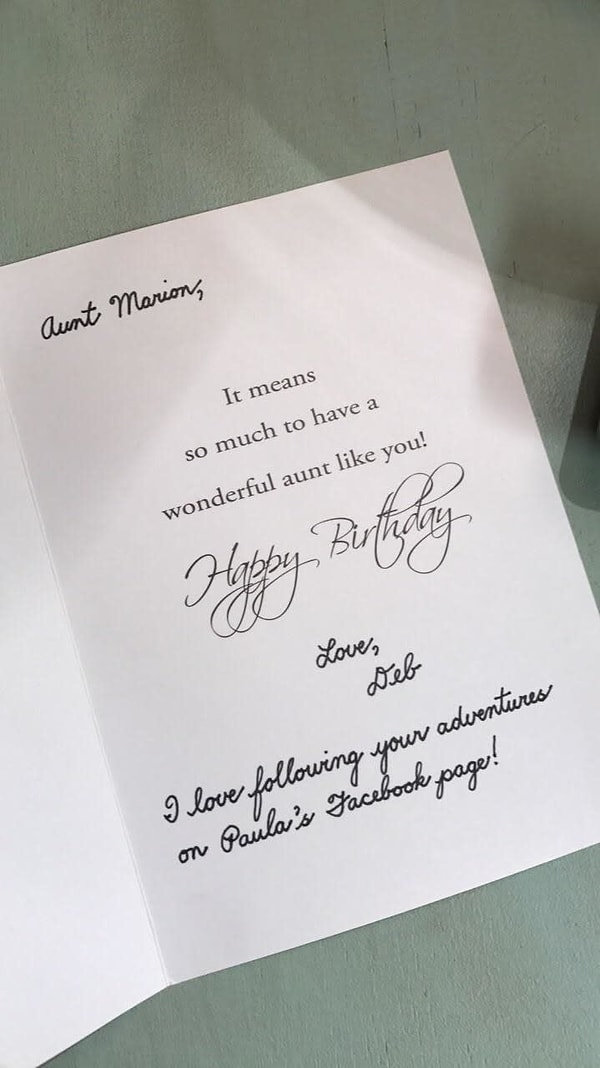 Aunt Marion,
It means
so much to have a
wonderful aunt like you!
Happy Birthday
Love,
Deb
I love following your adventures
on Paula's Facebook page!